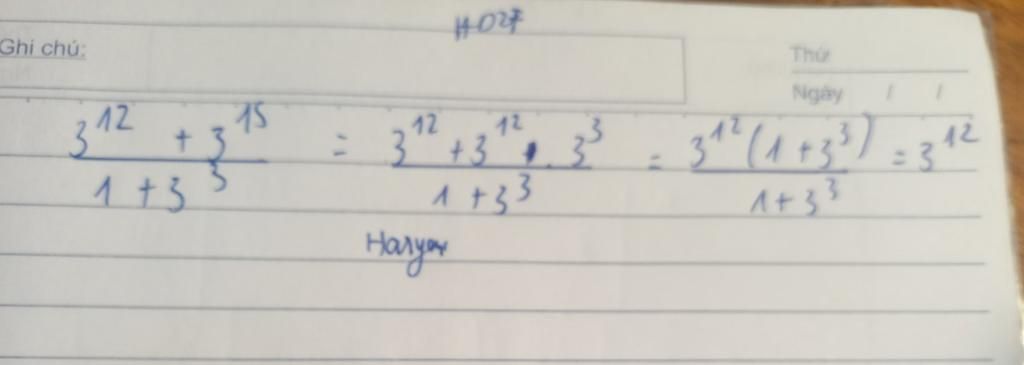 H027
Ghi chú:
Thứ
Ngày / /
3^12 + 3^15 / 1 + 3^3 = 3^12 + 3^12 . 3^3 / 1 + 3^3 = 3^12 (1 + 3^3) / 1 + 3^3 = 3^12